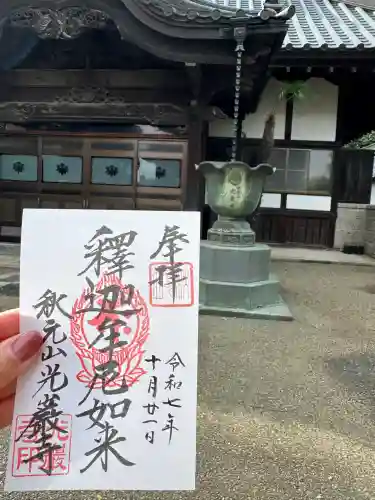 奉拝
令和七年
十月廿一日
釋迦牟尼如来
秋元山光巌寺